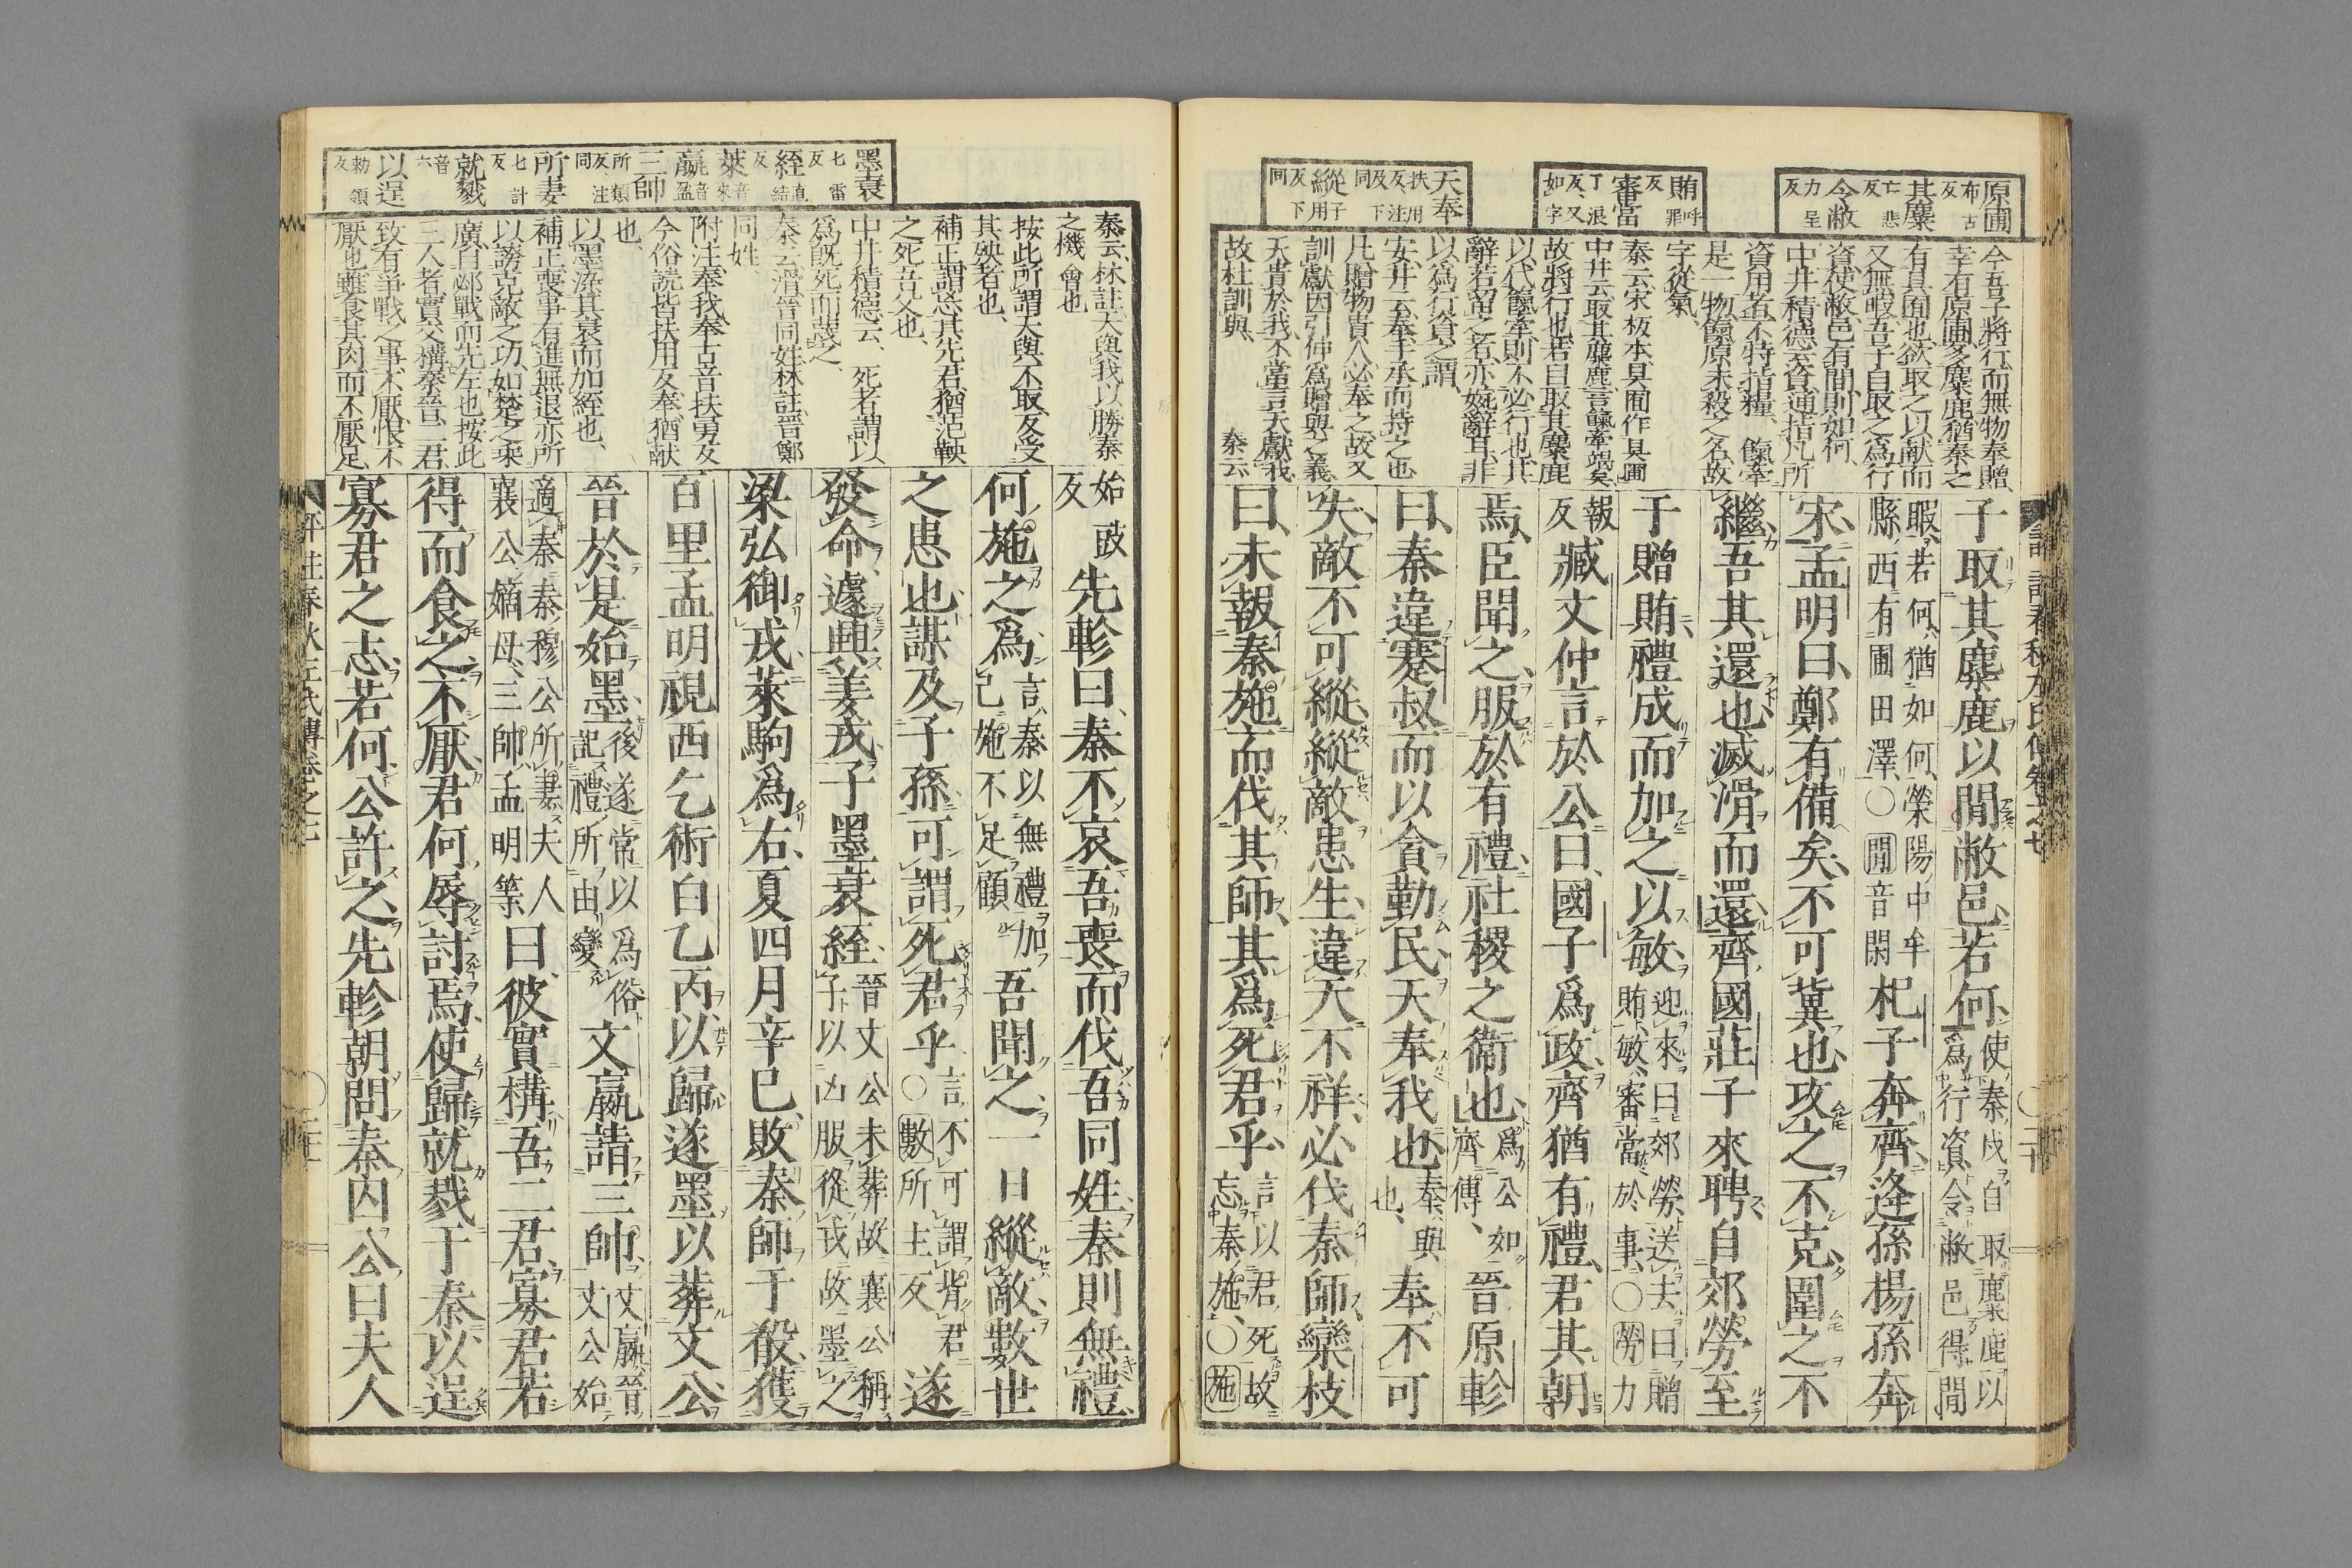 原圃
布古反
其麋
亡悲反
令敝
力呈反
賄
呼罪反
審當
丁浪反又如字
天奉
扶用反及注下同
縱
子用反下同
今吾子將行而無物奉贈
幸有原圃多麋鹿猶秦之
有具囿也欲取之以献而
又無暇吾子自取之爲行
資使敝邑有間則如何
中井積德云資通指凡所
資用者不特指糧餼牽
是一物餼原未殺之名故
字從氣
秦云宋板本具囿作具圃
中井云取其麋鹿言餼牽竭矣
故將行也若自取其麋鹿
以代餼牽則不必行也其
辭若留之者亦婉辭耳非
以爲行資之謂
安井云奉手承而持之也
凡贈物貴人必奉之故又
訓獻因引伸爲贈與之義
天貴於我不當言天獻我
故杜訓與
秦云
子取其麋鹿以閒敝邑若何使秦戍自取麋鹿以
爲行資令敝邑得閒
暇若何猶如何滎陽中牟
縣西有圃田澤○閒音閑杞子奔齊逢孫揚孫奔
宋孟明曰鄭有備矣不可冀也攻之不克圍之不
繼吾其還也滅滑而還齊國莊子來聘自郊勞至
于贈賄禮成而加之以敏迎來曰郊勞送去曰贈
賄敏審當於事○勞力
報
反臧文仲言於公曰國子爲政齊猶有禮君其朝
焉臣聞之服於有禮社稷之衞也爲公如
齊傳晉原軫
曰秦違蹇叔而以貪勤民天奉我也奉與
也奉不可
失敵不可縱縱敵患生違天不祥必伐秦師欒枝
曰未報秦施而伐其師其爲死君乎言以君死故
忘秦施○施
墨衰
七雷反
絰
直結反
萊
音來
嬴
音盈
三帥
所類反注同
所妻
七計反
就戮
音六
以逞
勑領反
秦云林註天與我以勝秦
之機會也
按此所謂天與不取反受
其殃者也
補正謂忘其先君猶范鞅
之死吾父也
中井積德云死者謂以
爲既死而蔑之
秦云滑晉同姓林註晉鄭
同姓
附注奉我奉古音扶勇反
今俗読皆扶用反奉猶献
也
以墨染其衰而加絰也
補正喪事有進無退亦所
以謗克敵之功如楚之乘
廣自邲戰而先左也按此
三人者實交構秦晉二君
致有爭戰之事不厭恨不
厭也雖食其肉而不厭足
始豉
反先軫曰秦不哀吾喪而伐吾同姓秦則無禮
何施之爲言秦以無禮加
己施不足顧吾聞之一日縱敵數世
之患也謀及子孫可謂死君乎言不可謂背君
○數所主反遂
發命遽興姜戎子墨衰絰晉文公未葬故襄公稱
子以凶服從戎故墨之
梁弘御戎萊駒爲右夏四月辛巳敗秦師于殽獲
百里孟明視西乞術白乙丙以歸遂墨以葬文公
晉於是始墨後遂常以爲俗
記禮所由變文嬴請三帥文嬴晉
文公始
適秦秦穆公所妻夫人
襄公嫡母三帥孟明等曰彼實構吾二君寡君若
得而食之不厭君何辱討焉使歸就戮于秦以逞
寡君之志若何公許之先軫朝問秦囚公曰夫人